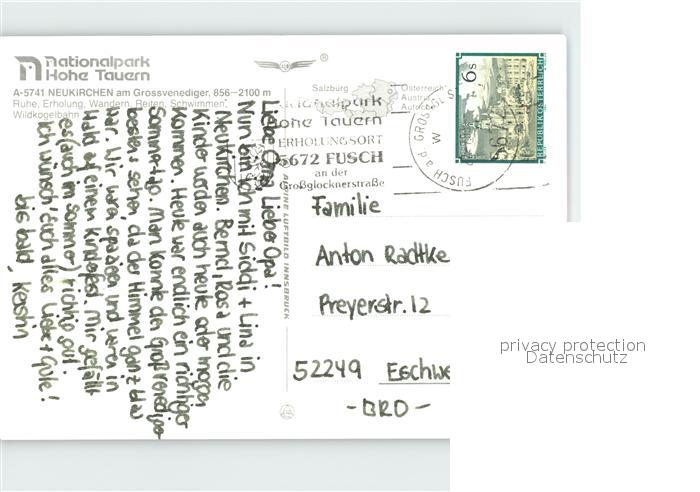 nationalpark
Hohe Tauern
A-5741 NEUKIRCHEN am Grossvenediger, 856–2100 m
Ruhe, Erholung, Wandern, Reiten, Schwimmen.
Wildkogelbahn
Liebe Oma, lieber Opa!
Nun bin ich mit Siddi + Lina in
Neukirchen. Bernd, Rosa und die
Kinder werden auch heute oder morgen
kommen. Heute war endlich ein richtiger
Sommertag. Man konnte den Großvenediger
bestens sehen, da der Himmel ganz blau
war. Wir waren spazieren und waren in
Wald auf einem Kinderfest. Mir gefällt
es (auch im Sommer) richtig gut.
Ich wünsch' Euch alles Liebe + Gute!
bis bald, Kerstin
ALPINE LUFTBILD INNSBRUCK
®
Salzburg
Österreich
Austria
Autriche
Nationalpark
Hohe Tauern
ERHOLUNGSORT
5672 FUSCH
an der
Großglocknerstraße
FUSCH a.d. GROSSGL. S
W
6 s
REPUBLIK ÖSTERREICH
Familie
Anton Radtke
Preyerstr. 12
52249 Eschwe
- BRD -
privacy protection
Datenschutz